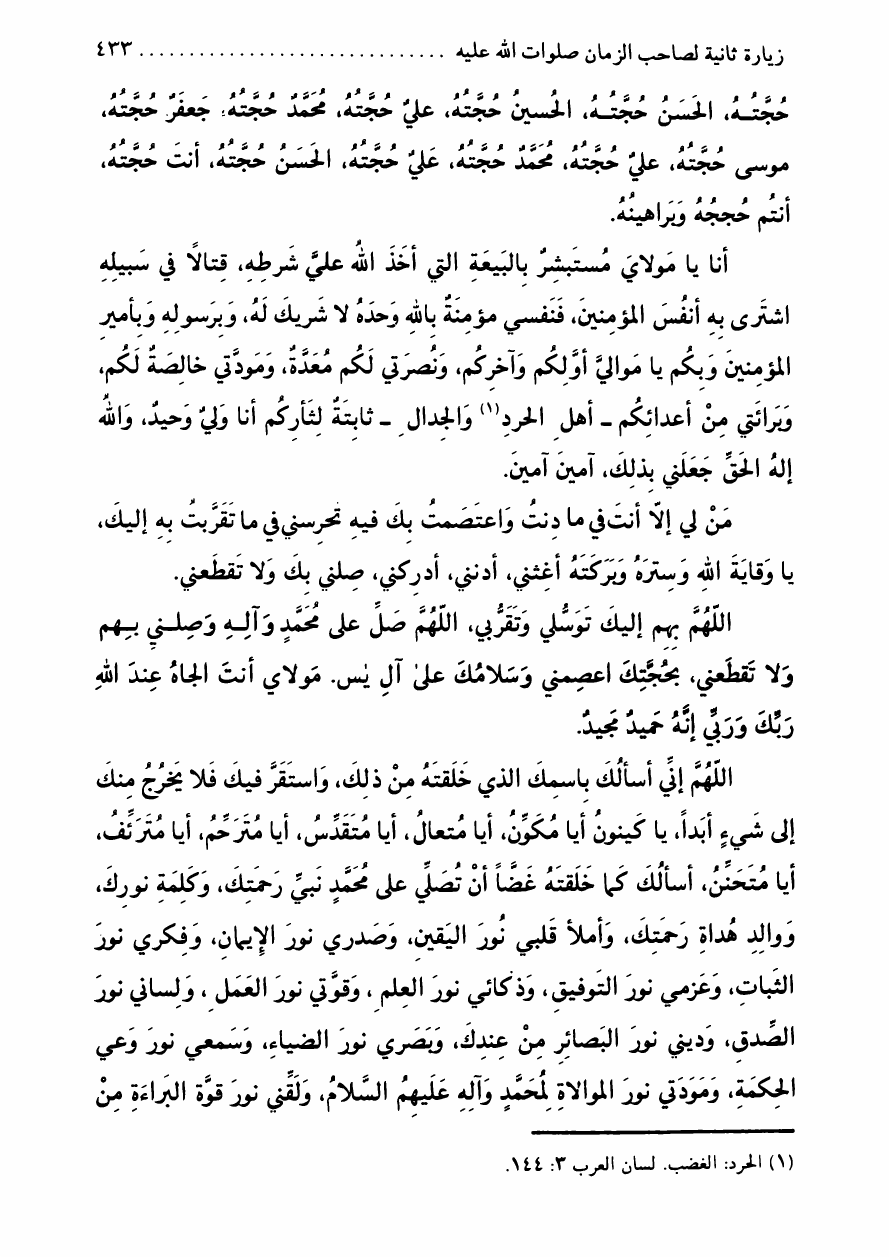 زيارة ثانية لصاحب الزمان صلوات الله عليه ............................... ٤٣٣
حُجَّتُـهُ، الحَسَنُ حُجَّتُـهُ، الحُسينُ حُجَّتُهُ، عليٌ حُجَّتُهُ، مُحَمَّدٌ حُجَّتُهُ، جَعفَرٌ حُجَّتُهُ،
موسى حُجَّتُهُ، عليٌ حُجَّتُهُ، مُحَمَّدٌ حُجَّتُهُ، عَليٌ حُجَّتُهُ، الحَسَنُ حُجَّتُهُ، أنتَ حُجَّتُهُ،
أنتُم حُججُهُ وَبَراهينُهُ.
أنا يا مَولايَ مُستَبشِرٌ بِالبَيعَةِ التي أخَذَ اللهُ عليَّ شَرطِهِ، قِتالًا في سَبيلِهِ
اشتَرى بِهِ أنفُسَ المؤمِنينَ، فَنَفسي مؤمِنَةٌ بِاللهِ وَحدَهُ لا شَريكَ لَهُ، وَبِرَسولِهِ وَبِأميرِ
المؤمِنينَ وَبِكُم يا مَواليَّ أوَّلِكُم وَآخِرِكُم، وَنُصرَتي لَكُم مُعَدَّةٌ، وَمَودَّتي خالِصَةٌ لَكُم،
وَبَرائَتي مِنْ أعدائِكُم - أهلِ الحردِ(١) وَالجِدالِ - ثابِتَةٌ لِثَأرِكُم أنا وَليٌ وَحيدٌ، وَاللهُ
إلهُ الحَقِّ جَعَلَني بِذلِكَ، آمينَ آمينَ.
مَنْ لي إلّا أنتَ في ما دِنتُ وَاعتَصَمتُ بِكَ فيهِ تَحرِسني في ما تَقَرَّبتُ بِهِ إليكَ،
يا وَقايَةَ اللهِ وَسِترَهُ وَبَرَكَتَهُ أغِثني، أدنني، أدرِكني، صِلني بِكَ وَلا تَقطَعني.
اللّهُمَّ بِهِم إليكَ تَوَسُّلي وَتَقَرُّبي، اللّهُمَّ صَلِّ على مُحَمَّدٍ وَآلِـهِ وَصِلـني بِـهِم
وَلا تَقطَعني، بِحُجَّتِكَ اعصِمني وَسَلامُكَ علىٰ آلِ يٰس. مَولاي أنتَ الجاهُ عِندَ اللهِ
رَبِّكَ وَرَبّي إنَّهُ حَميدٌ مَجيدٌ.
اللّهُمَّ إنّي أسألُكَ بِاسمِكَ الذي خَلَقتَهُ مِنْ ذلِكَ، وَاستَقَرَّ فيكَ فَلا يَخرُجُ مِنكَ
إلى شَيءٍ أبَداً، يا كَينونُ أيا مُكَوِّنُ، أيا مُتعالُ، أيا مُتَقَدِّسُ، أيا مُتَرَحِّمُ، أيا مُتَرَئِّفُ،
أيا مُتَحَنِّنُ، أسألُكَ كَما خَلَقتَهُ غَضَّاً أنْ تُصَلّي على مُحَمَّدٍ نَبيِّ رَحمَتِكَ، وَكَلِمَةِ نورِكَ،
وَوالِدِ هُداةِ رَحمَتِكَ، وَأملأ قَلبي نُورَ اليَقينِ، وَصَدري نورَ الإيمانِ، وَفِكري نورَ
الثَباتِ، وَعَزمي نورَ التَوفيقِ، وَذكائي نورَ العِلمِ، وَقوَّتي نورَ العَمَلِ، وَلِساني نورَ
الصِّدقِ، وَديني نورَ البَصائِرِ مِنْ عِندِكَ، وَبَصَري نورَ الضياءِ، وَسَمعي نورَ وَعي
الحِكمَةِ، وَمَوَدَتي نورَ الموالاةِ لِمُحَمَّدٍ وَآلِهِ عَلَيهِمُ السَّلامُ، وَلَقِّني نورَ قوَّةِ البَراءَةِ مِنْ
(١) الحرد: الغضب. لسان العرب ٣: ١٤٤.